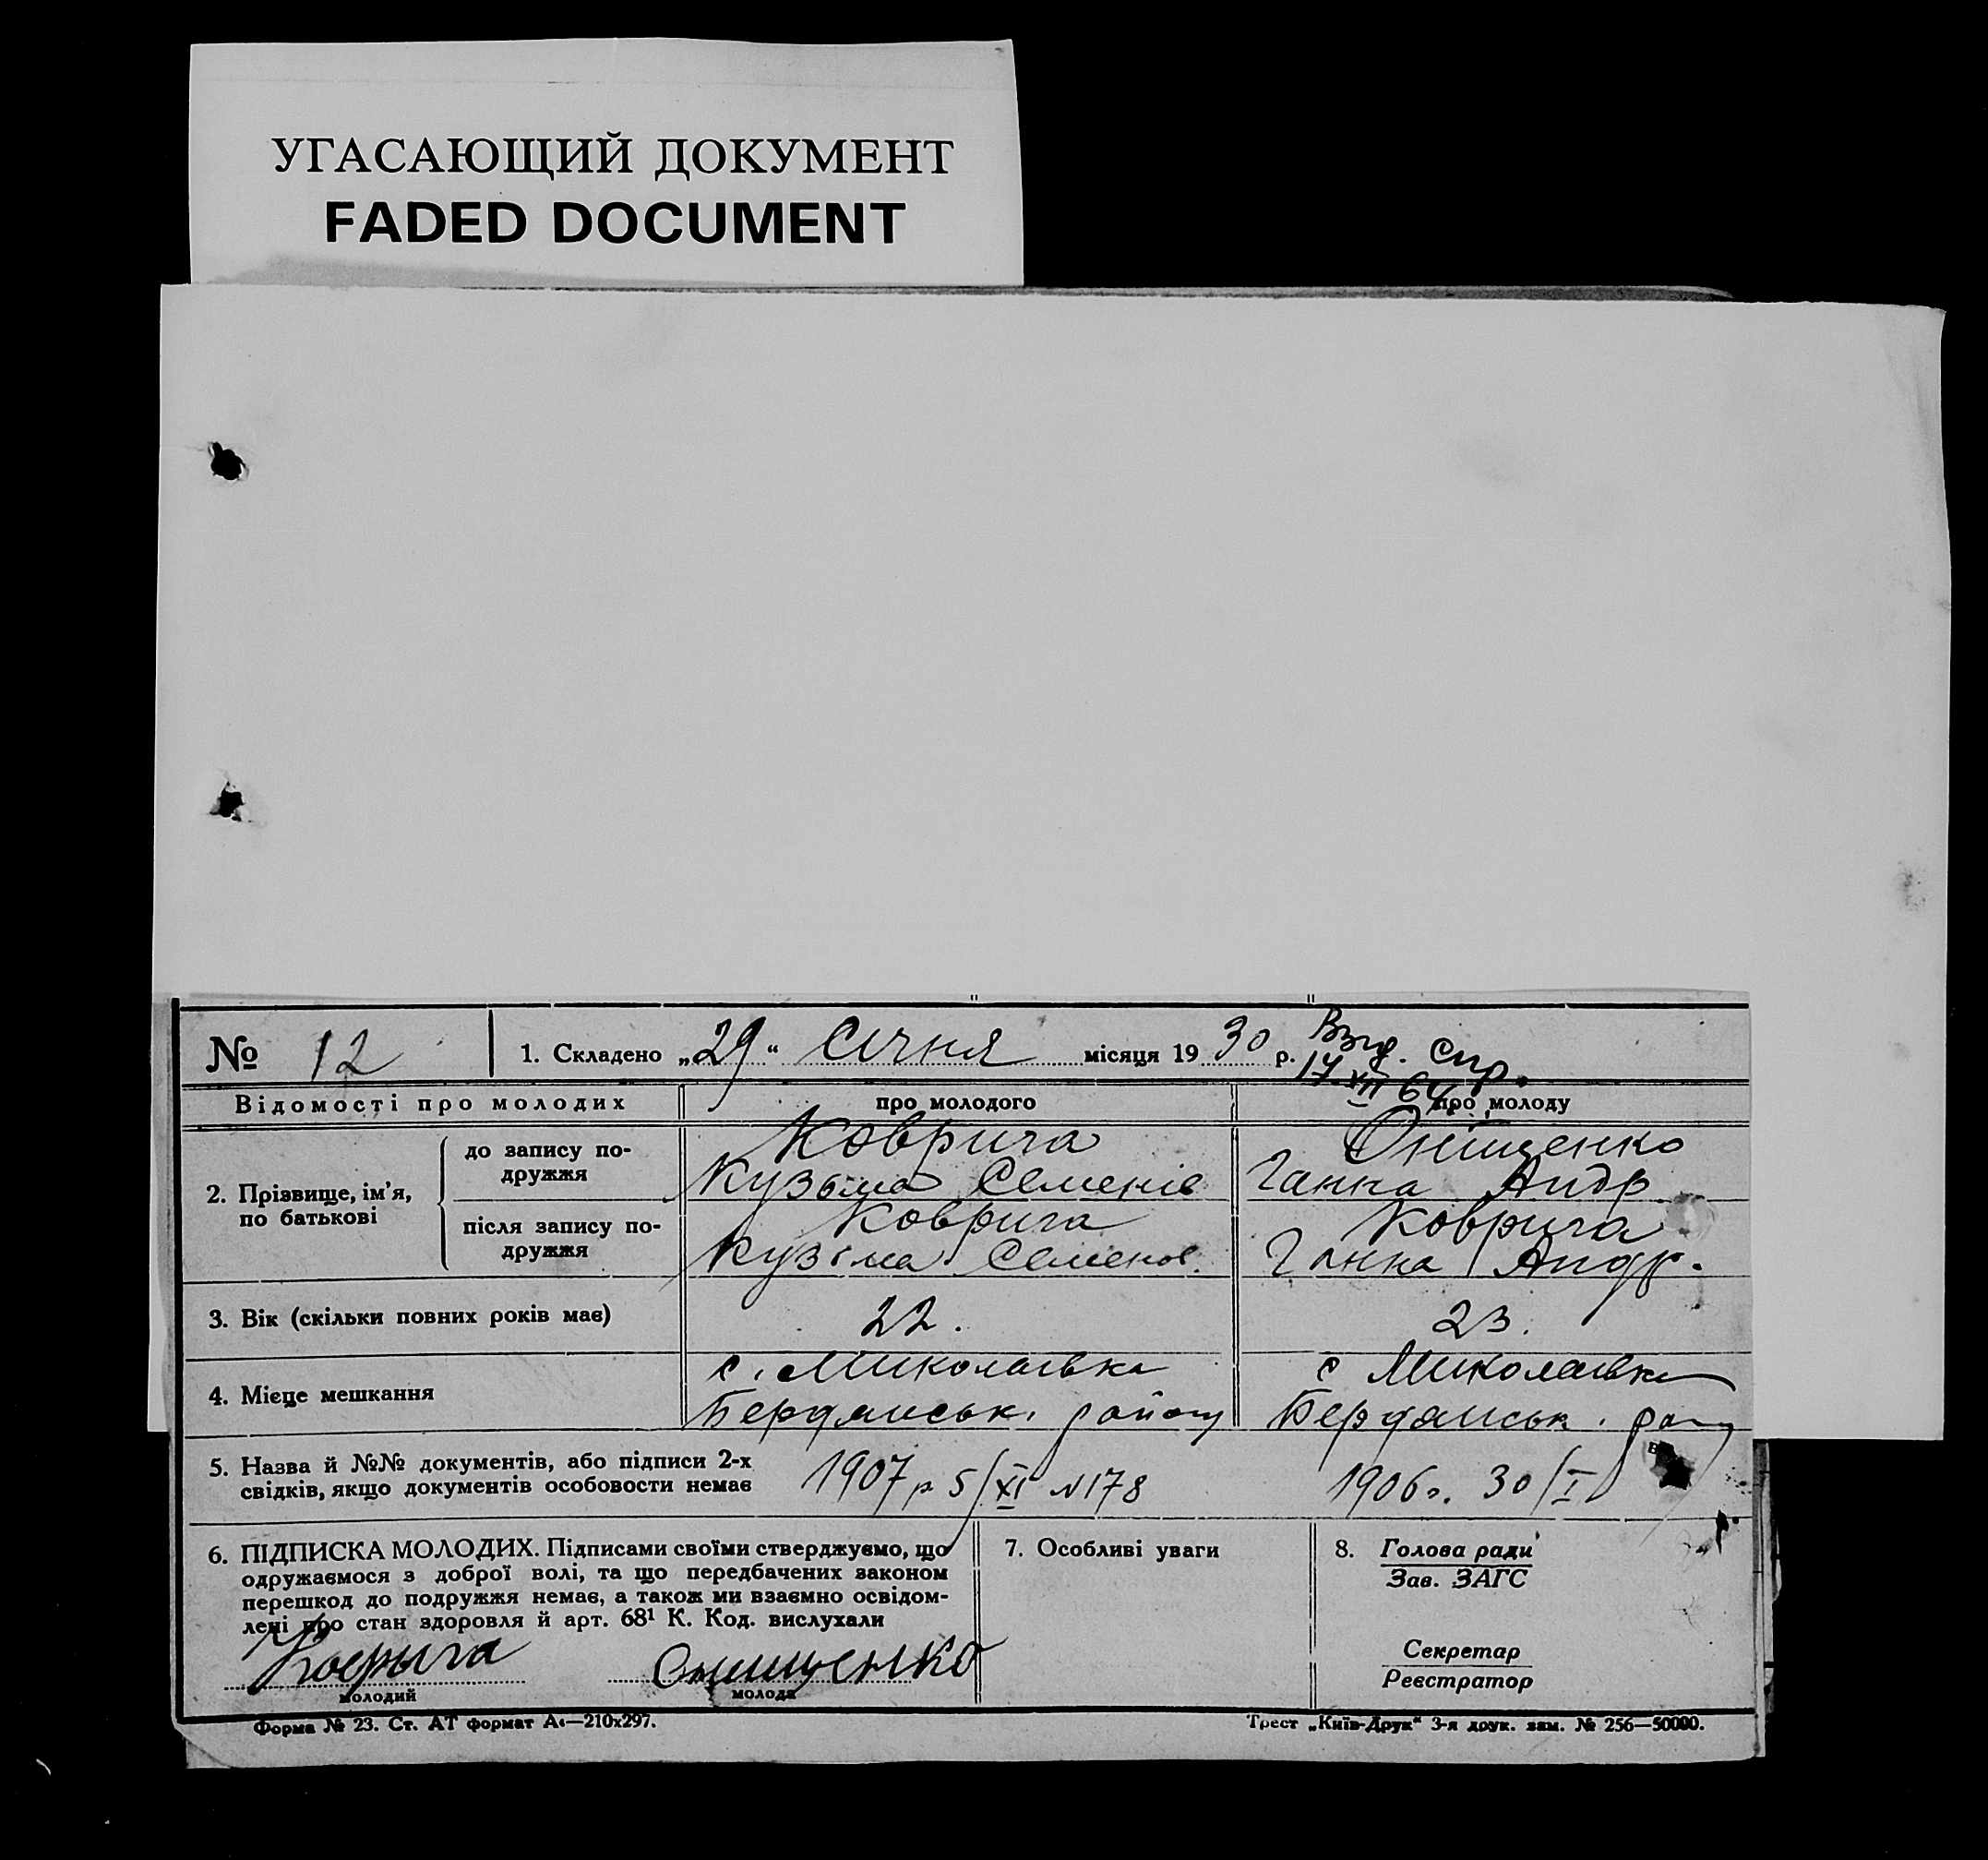 УГАСАЮЩИЙ ДОКУМЕНТ
FADED DOCUMENT
№ 12
1. Складено „29“ січня місяця 1930 р.
Взд. спр.
17 XII 64
Відомості про молодих
про молодого
про молоду
2. Прізвище, ім'я,
по батькові
до запису по-
дружжя
Коврига
Кузьма Семенів
Онищенко
Ганна Андр
після запису по-
дружжя
Коврига
Кузьма Семенов.
Коврига
Ганна Андр.
3. Вік (скільки повних років має)
22.
23.
4. Місце мешкання
с. Миколаївка
Бердянськ. району
с Миколаївка
Бердянськ.
5. Назва й №№ документів, або підписи 2-х
свідків, якщо документів особовости немає
1907 р 5/XI №178
1906 р. 30/I
6. ПІДПИСКА МОЛОДИХ. Підписами своїми стверджуємо, що
одружаємося з доброї волі, та що передбачених законом
перешкод до подружжя немає, а також ми взаємно освідом-
лені про стан здоровля й арт. 68¹ К. Код. вислухали
Коврыга
молодий
Онищенко
молода
7. Особливі уваги
8. Голова ради
Зав. ЗАГС
Секретар
Реєстратор
Форма № 23. Ст. АТ формат А₄—210х297.
Трест „Київ-Друк“ 3-я друк. зам. № 256—50000.